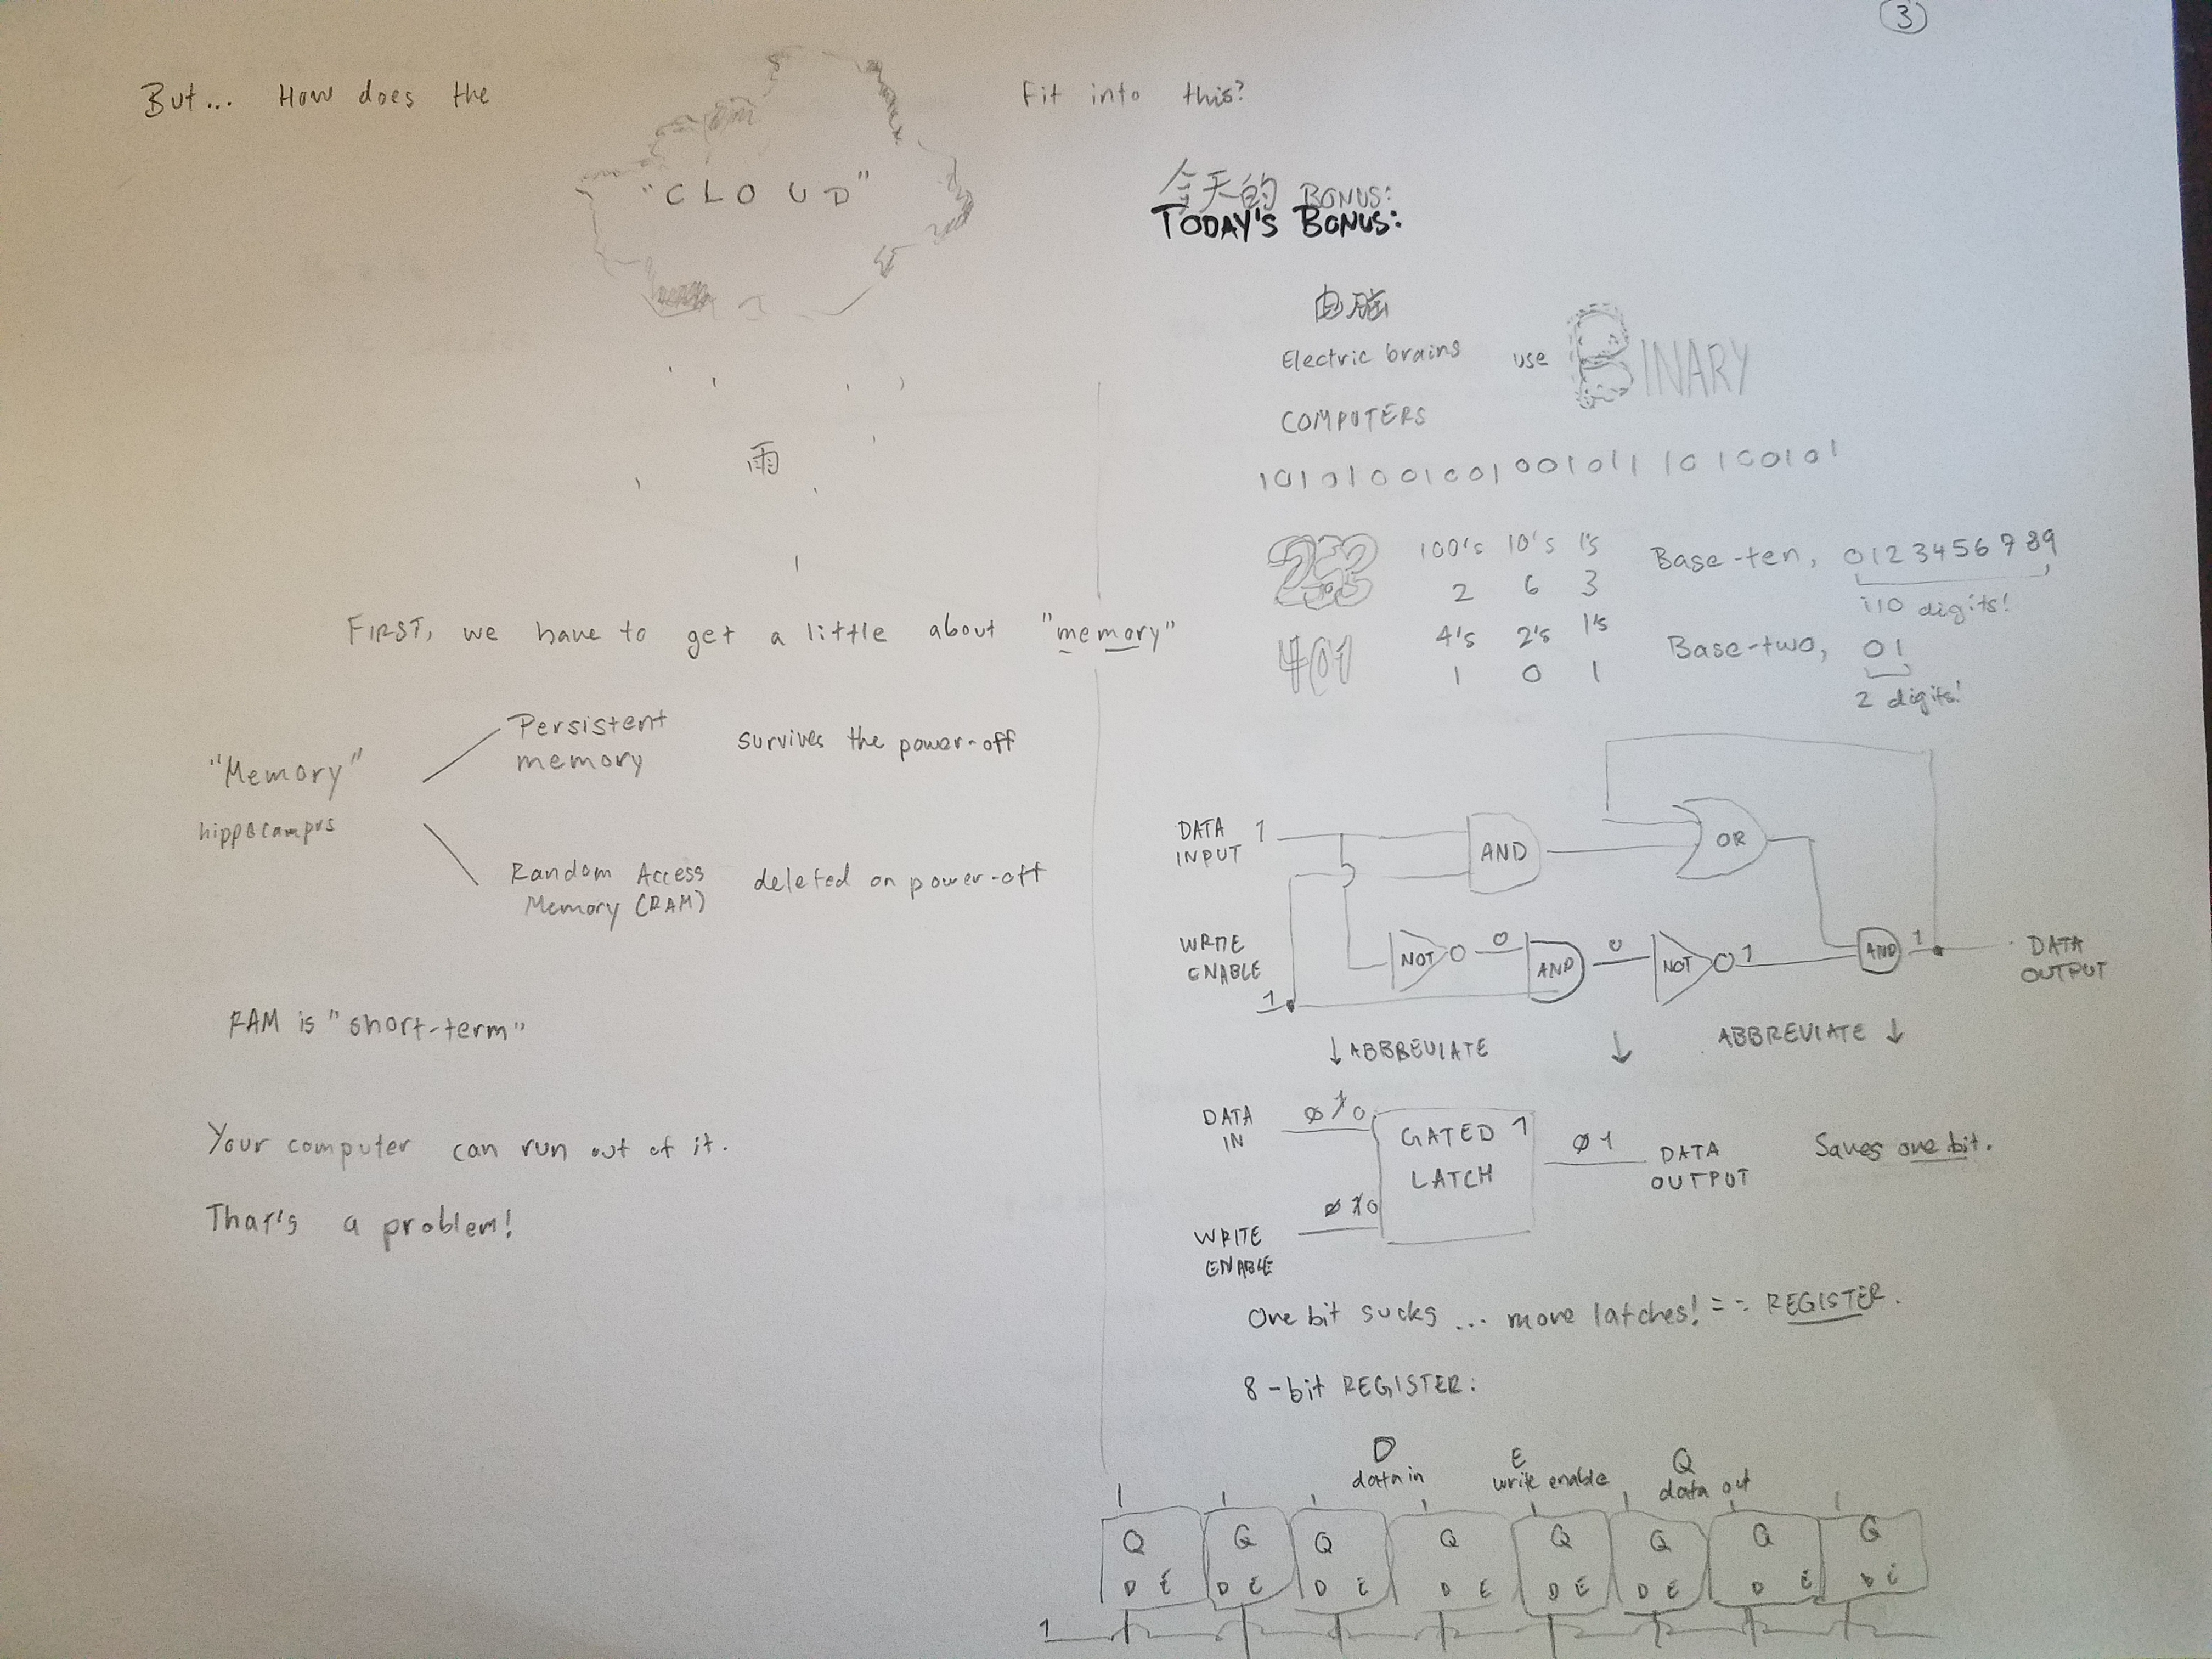 3
But... How does the "CLOUD" fit into this?
雨
FIRST, we have to get a little about "memory"
"Memory"
hippocampus
Persistent
memory
survives the power-off
Random Access
Memory (RAM)
deleted on power-off
RAM is "short-term"
Your computer can run out of it.
That's a problem!
今天的 BONUS:
TODAY'S BONUS:
电脑
Electric brains use BINARY
COMPUTERS
100's 10's 1's
2 6 3
Base-ten, 0123456789
10 digits!
4's 2's 1's
1 0 1
Base-two, 01
2 digits!
DATA
INPUT
1
AND
OR
WRITE
ENABLE
1
NOT
0
AND
0
NOT
1
AND
1
DATA
OUTPUT
↓ ABBREVIATE ↓
ABBREVIATE ↓
DATA
IN
WRITE
ENABLE
GATED
LATCH
DATA
OUTPUT
Saves one bit.
One bit sucks... more latches! =: REGISTER.
8-bit REGISTER:
D
data in
E
write enable
Q
data out
1
Q Q Q Q Q Q Q Q
D E D E D E D E D E D E D E D E